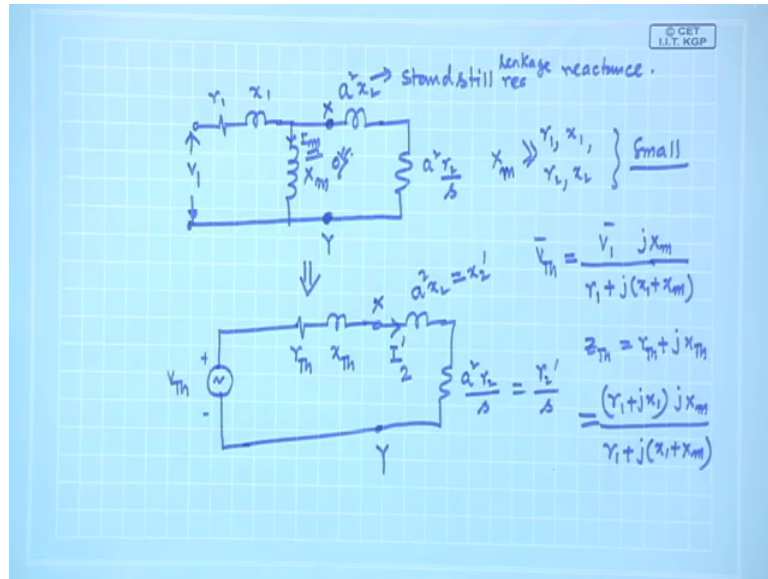 © CET
I.I.T. KGP
a²x₂ → standstill leakage reactance.
r₁ x₁ X
V₁ Iₘ xₘ a²r₂/s
Y
xₘ >> r₁, x₁, r₂, x₂ } Small
V̄_Th = V̄₁ jxₘ / r₁+j(x₁+xₘ)
⇓
a²x₂ = x₂'
V_Th + - ~ r_Th x_Th X I₂' a²r₂/s = r₂'/s
Y
Z_Th = r_Th + jx_Th
= (r₁+jx₁) jxₘ / r₁+j(x₁+xₘ)